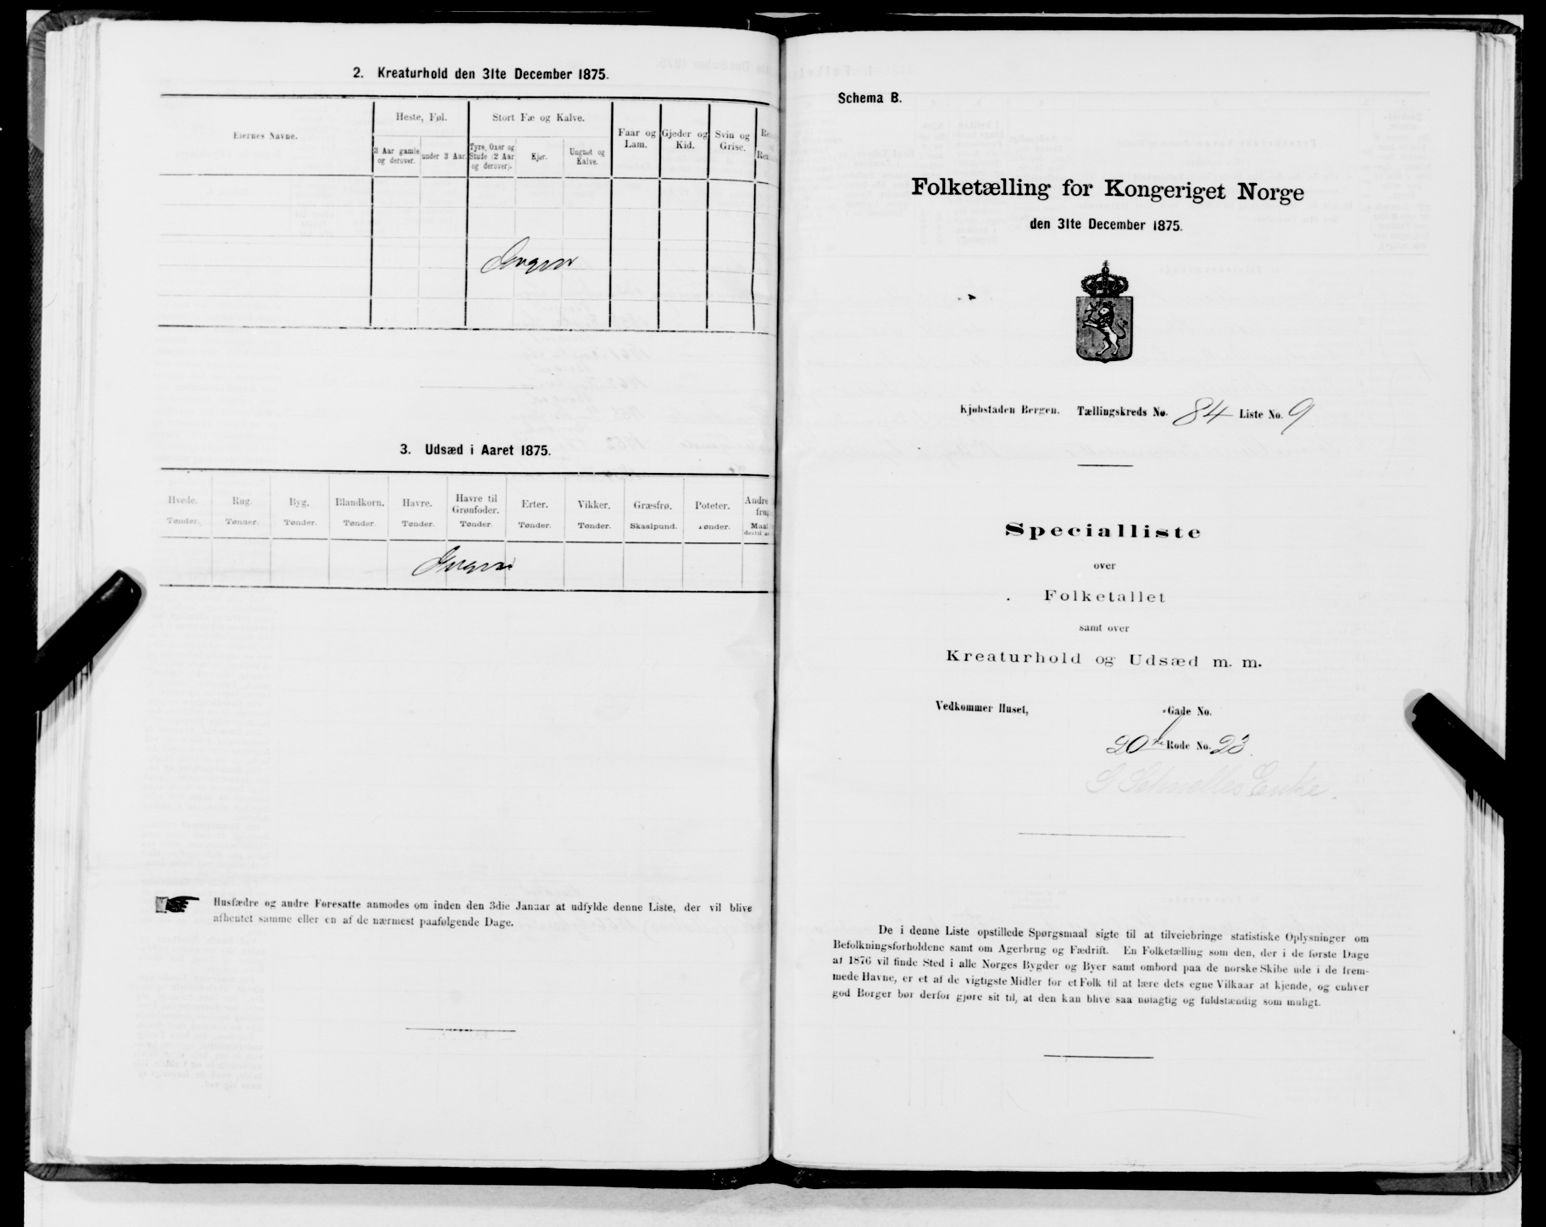 2. Kreaturhold den 31te December 1875.
Eiernes Navne.
Heste, Føl.
Stort Fæ og Kalve.
Faar og
Lam.
Gjeder og
Kid.
Svin og
Grise.
Re
Ren
3 Aar gamle
og derover.
under 3 Aar.
Tyre, Oxer og
Stude (2 Aar
og derover).
Kjør.
Ungnøt og
Kalve.
Ingen
3. Udsæd i Aaret 1875.
Hvede. Rug. Byg. Blandkorn. Havre. Havre til Grønfoder. Erter. Vikker. Græsfrø. Poteter. Andre
Tønder. Tønder. Tønder. Tønder. Tønder. Tønder. Tønder. Tønder. Skaalpund. Tønder. Maal
Ingen
Husfædre og andre Foresatte anmodes om inden den 3die Januar at udfylde denne Liste, der vil blive
afhentet samme eller en af de nærmest paafølgende Dage.
Schema B.
Folketælling for Kongeriget Norge
den 31te December 1875.
Kjøbstaden Bergen. Tællingskreds No. 84 Liste No. 9
Specialliste
over
Folketallet
samt over
Kreaturhold og Udsæd m. m.
Vedkommer Huset, Gade No.
20de Rode No. 23
G Schnelles Enke.
De i denne Liste opstillede Spørgsmaal sigte til at tilveiebringe statistiske Oplysninger om
Befolkningsforholdene samt om Agerbrug og Fædrift. En Folketælling som den, der i de første Dage
af 1876 vil finde Sted i alle Norges Bygder og Byer samt ombord paa de norske Skibe ude i de frem-
mede Havne, er et af de vigtigste Midler for et Folk til at lære dets egne Vilkaar at kjende, og enhver
god Borger bør derfor gjøre sit til, at den kan blive saa nøiagtig og fuldstændig som muligt.